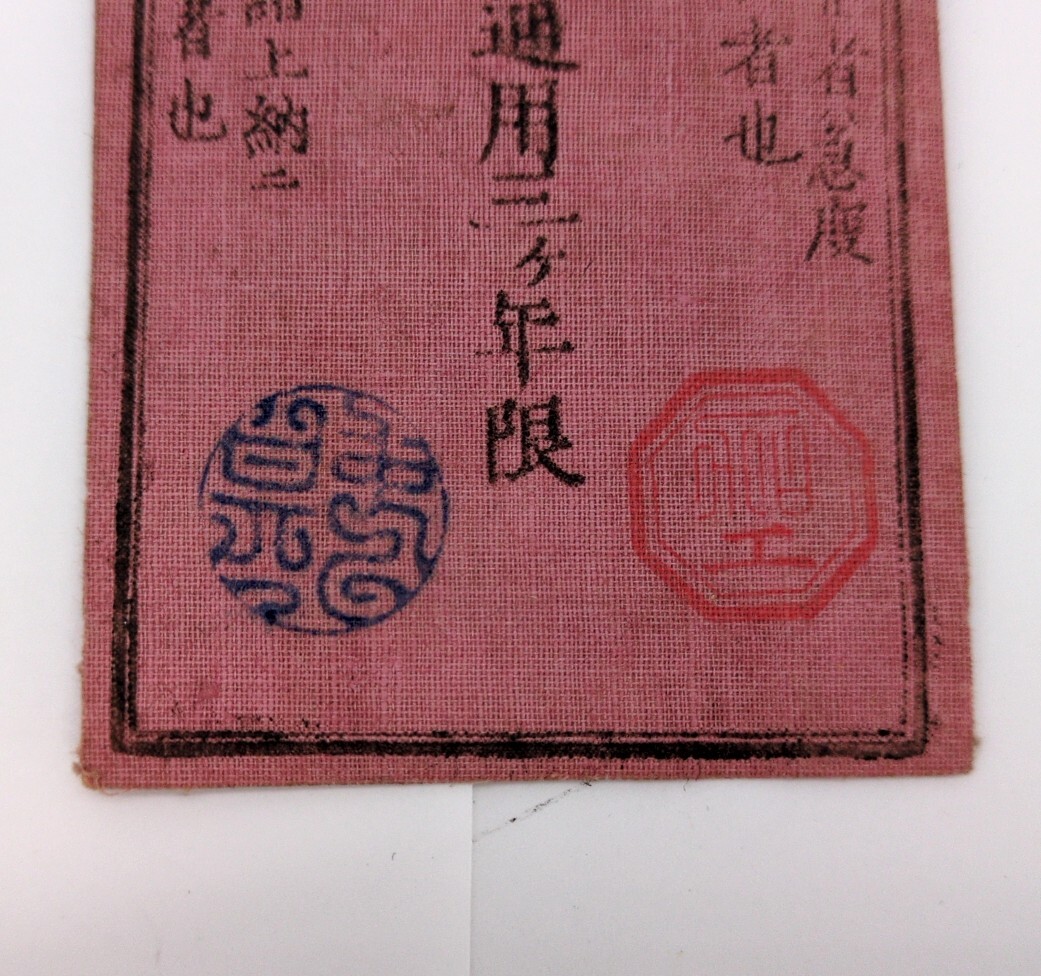 者急度
者也
通用三ヶ年限
上納ニ
者也